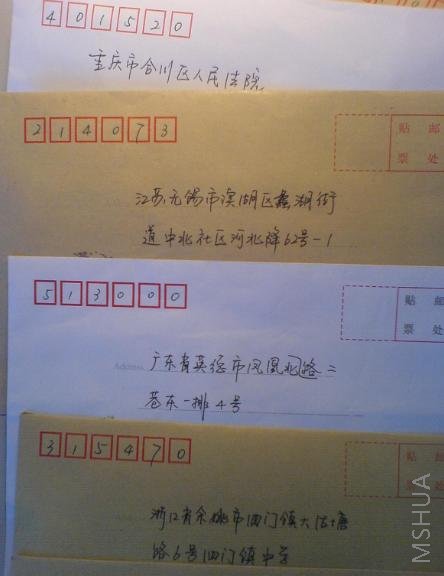 401520
重庆市合川区人民法院
214073
贴 邮
票 处
江苏无锡市滨湖区蠡湖街
道中北社区河北降62号-1
513000
贴 邮
票 处
Address
广东省英德市凤凰北路二
巷东一排4号
315470
贴
票 处
浙江省余姚市泗门镇大法塘
路6号泗门镇中学
MSHUA